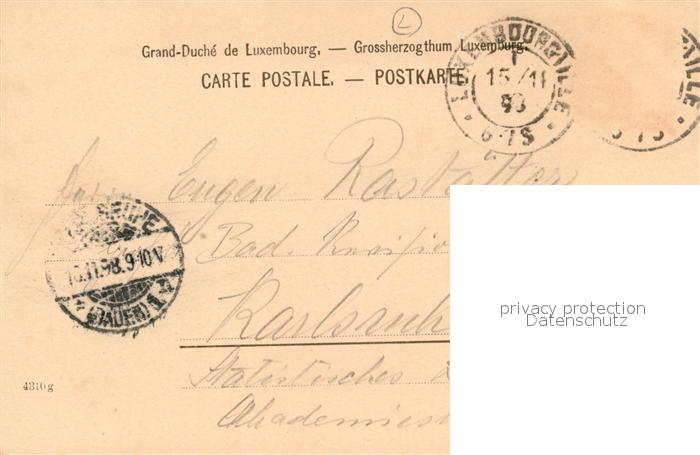 L
Grand-Duché de Luxembourg. — Grossherzogthum Luxemburg.
CARTE POSTALE. — POSTKARTE.
LUXEMBOURG VILLE
15/11
98
6-7S
VILLE
6-7S
Eugen Rastatter
Bad.
Karlsruh
Statistisches
Akademies
.11.98.9-10V
(BADEN)
4310g
privacy protection
Datenschutz